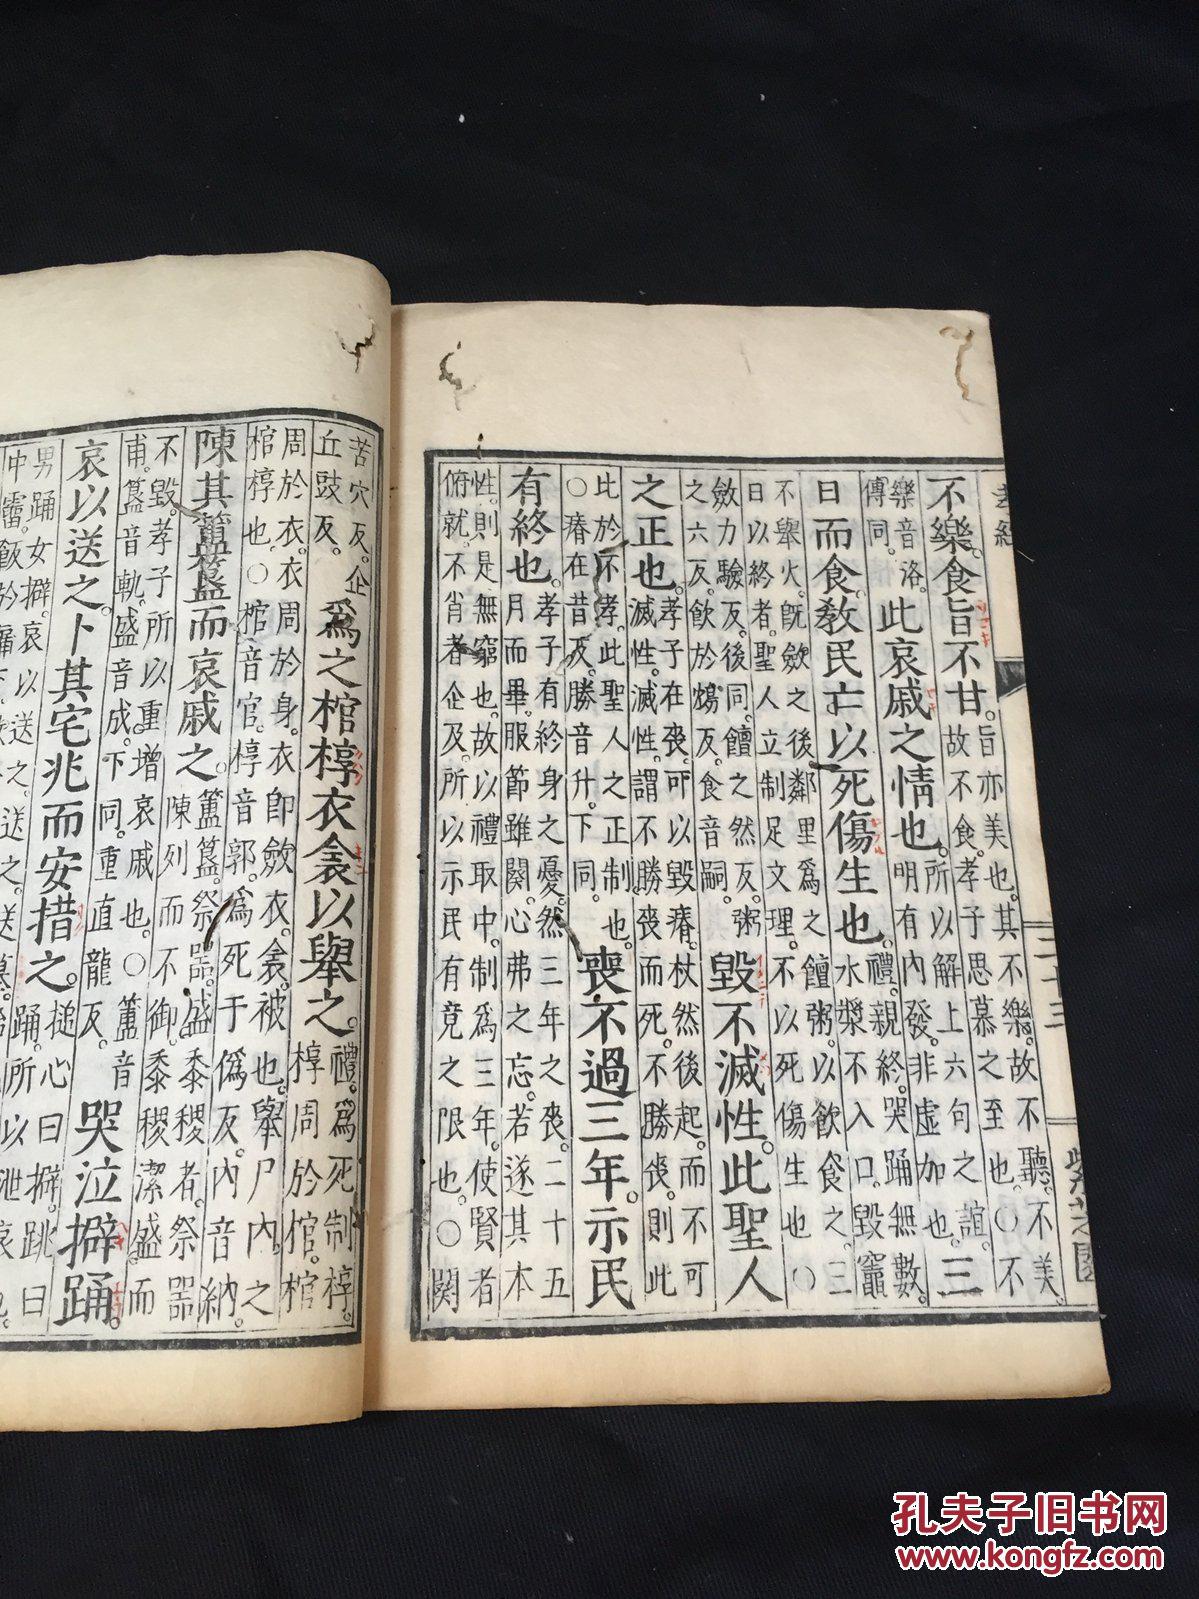 孝經
二十三
紫芝園
不樂。食旨不甘。
旨亦美也。其不樂。故不聽。不美。
故不食。孝子思慕之至也。○不
樂音洛。
傳同。
此哀戚之情也。
所以解上六句之誼
明有內發。非虛加也。
三
日而食。教民亡以死傷生也。
禮。親終。哭踊無數。
水漿不入口。毀竈
不舉火。既斂之後鄰里爲之饘粥。以飲食之。三
日以終者。聖人立制足文理。不以死傷生也○
斂力驗反。後同。饘之然反。粥
之六反。飲於鴆反。食音嗣。
毀不滅性。此聖人
之正也。
孝子在喪。可以毀瘠。杖然後起。而不可
滅性。滅性。謂不勝喪而死。不勝喪。則此
比於不孝。此聖人之正制也。
○瘠在昔反。勝音升。下同。
喪不過三年。示民
有終也。
孝子有終身之憂。然三年之喪。二十五
月而畢。服節雖闋。心弗之忘。若遂其本
性。則是無窮也。故以禮取中。制爲三年。使賢者
俯就。不肖者企及。所以示民有竟之限也。○闋
苦穴反。企
丘豉反。
爲之棺椁衣衾以舉之。
禮。爲死制椁。
椁周於棺。棺
周於衣。衣周於身。衣卽斂衣。衾被也。舉尸內之
棺椁也。○棺音官。椁音郭。爲死于僞反。內音納。
陳其簠簋而哀戚之。
簠簋。祭器。盛黍稷者。祭器
陳列而不御。黍稷潔盛。而
不毀。孝子所以重增哀戚也。○簠音
甫。簋音軌。盛音成。下同。重直龍反。
哭泣擗踊。
哀以送之。卜其宅兆而安措之。
槌心曰擗。跳曰
踊。所以泄哀也。
男踊女擗。哀以送之。送之。送墓。
中霤。飲於牖下。
孔夫子旧书网
www.kongfz.com